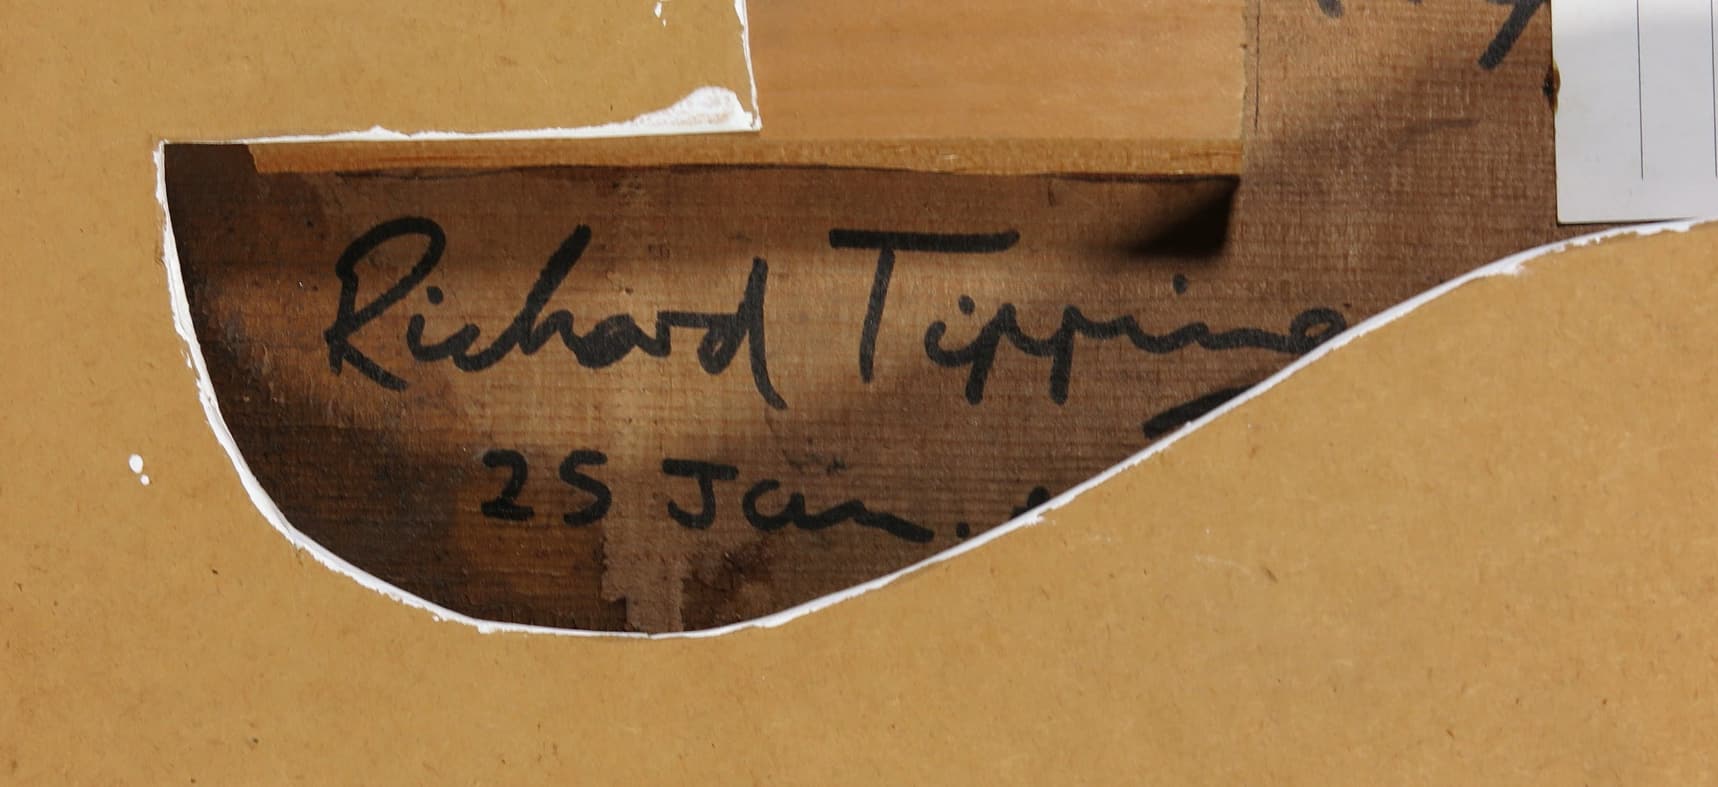 Richard Tipping
25 Jan.